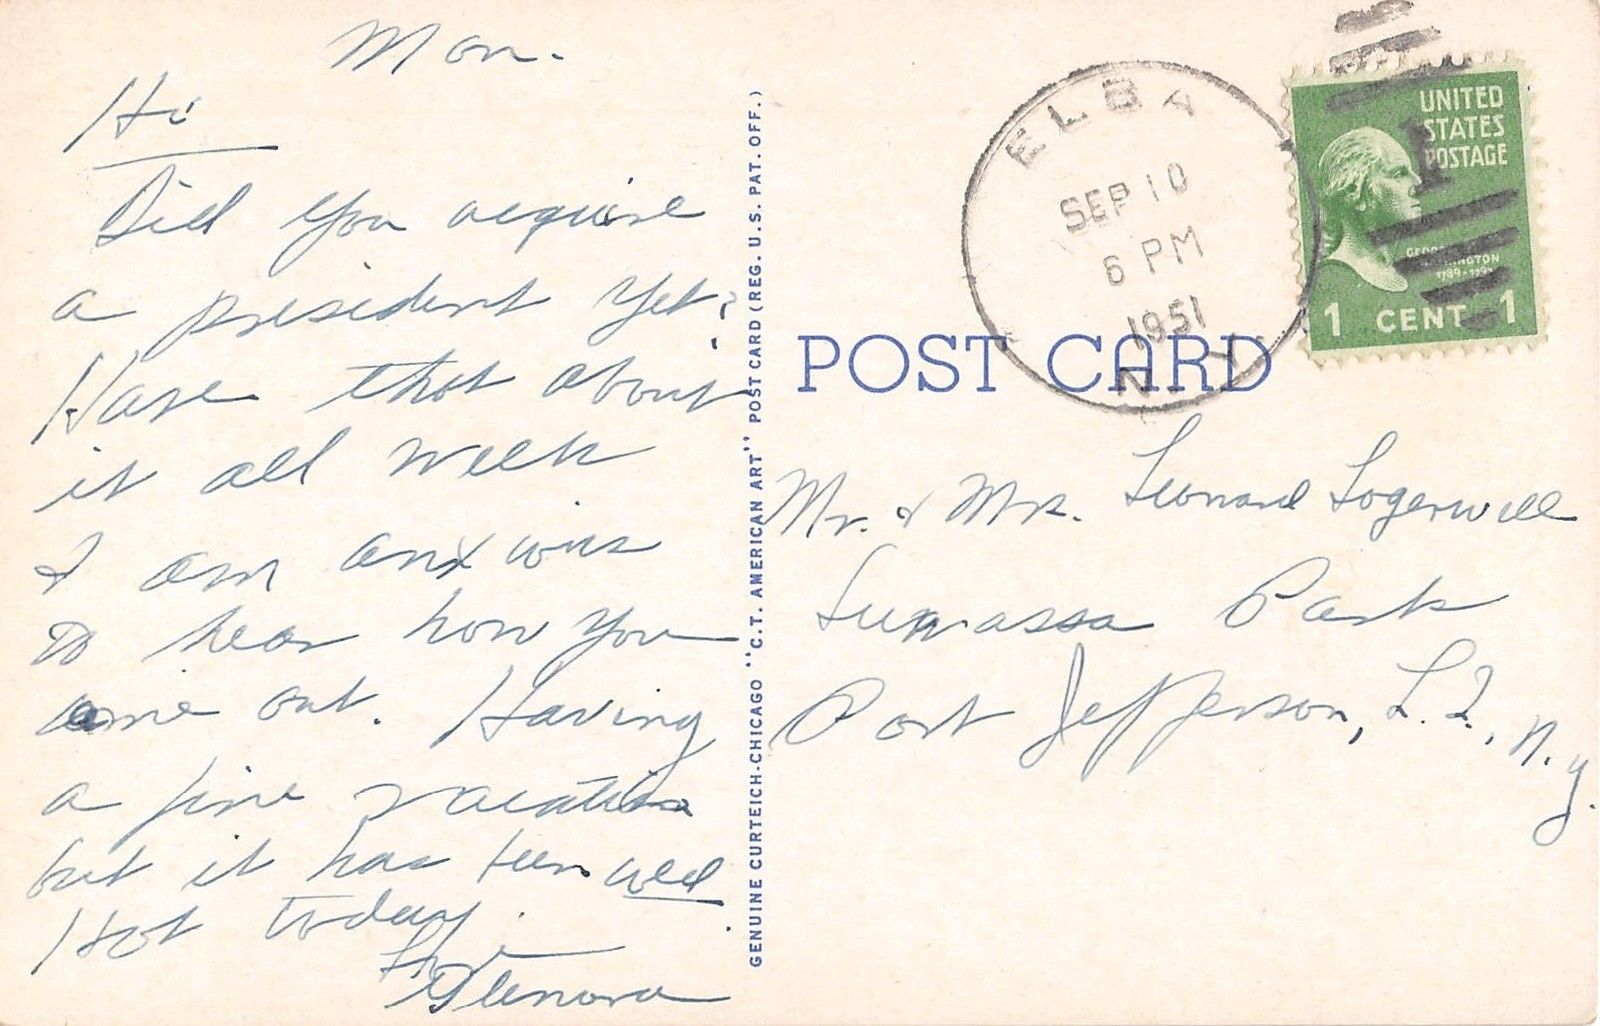 Mon.
Hi
Did you acquire
a president yet?
Have thot about
it all week
I am anxious
to hear how you
come out. Having
a fine vacation
but it has been cold
Hot today.
Love
Glenora
GENUINE CURTEICH-CHICAGO "C.T. AMERICAN ART" POST CARD (REG. U.S. PAT. OFF.)
ELBA
SEP 10
6 PM
1951
N.Y.
UNITED
STATES
POSTAGE
GEORGE WASHINGTON
1789-1797
1 CENT 1
POST CARD
Mr. & Mrs. Leonard Logerwell
Park
Port Jefferson, L.I., N.Y.